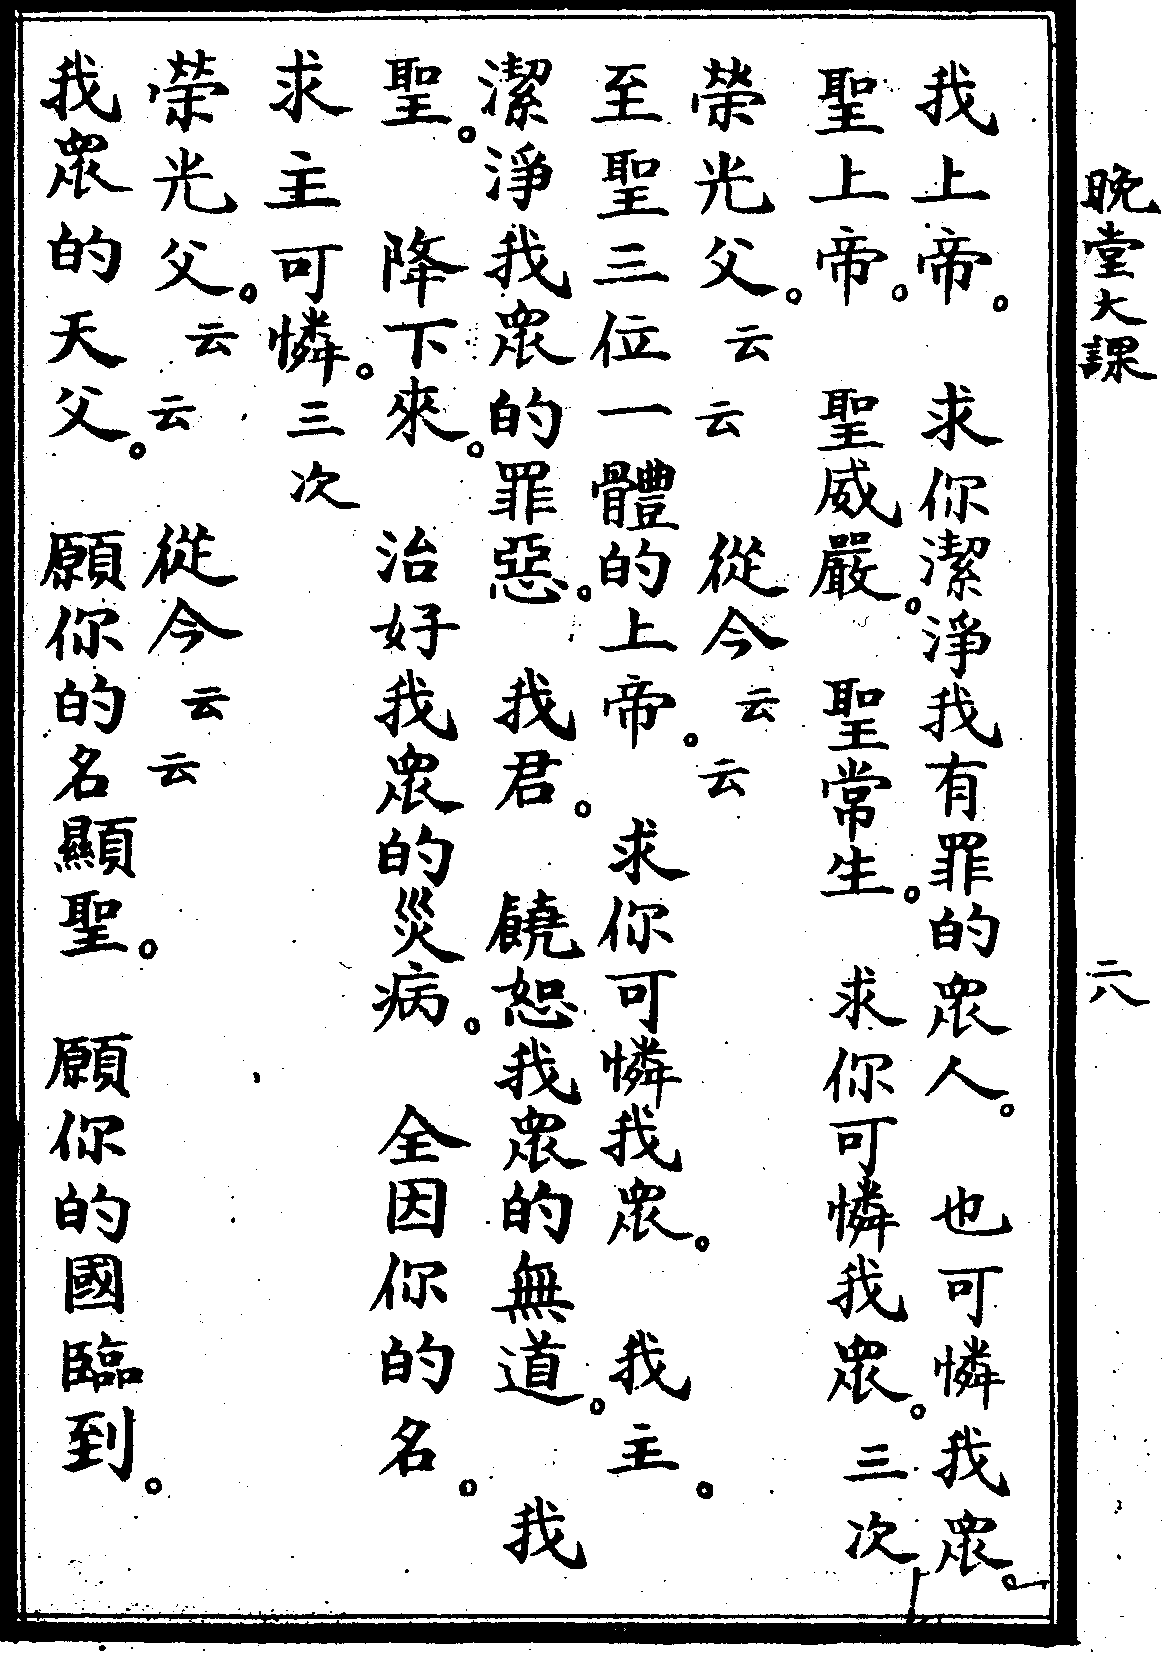 晚堂大課
二八
我上帝。　求你潔淨我有罪的眾人。　也可憐我眾。
聖上帝。　聖威嚴。　聖常生。　求你可憐我眾。三次
榮光父。云云　從今云云
至聖三位一體的上帝。　求你可憐我眾。　我主。
潔淨我眾的罪惡。　我君。　饒恕我眾的無道。　我
聖。　降下來。　治好我眾的災病。　全因你的名。
求主可憐。三次
荣光父。云云　從今云云
我眾的天父。　願你的名顯聖。　願你的國臨到。